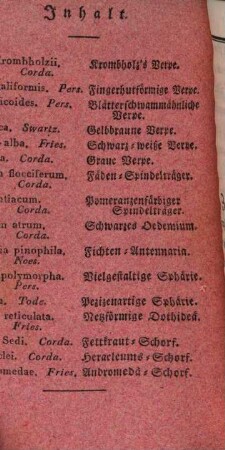 Inhalt.
rombholzii. Krombholz's Verpe.
Corda.
aliformis. Pers. Fingerhutförmige Verpe.
icoides. Pers. Blätterschwammähnliche
Verpe.
ca. Swartz. Gelbbraune Verpe.
alba. Fries. Schwarz-weiße Verpe.
a. Corda. Graue Verpe.
n flocciferum. Fäden-Spindelträger.
Corda.
ntiacum. Pomeranzenfärbiger
Corda. Spindelträger.
m atrum, Schwarzes Oedemium.
Corda.
ia pinophila. Fichten-Antennaria.
Nees.
polymorpha. Vielgestaltige Sphärie.
Pers.
a. Tode. Pezizenartige Sphärie.
reticulata. Netzförmige Dothidea.
Fries.
Sedi. Corda. Fettkraut-Schorf.
clei. Corda. Heracleums-Schorf.
medae. Fries. Andromeda-Schorf.